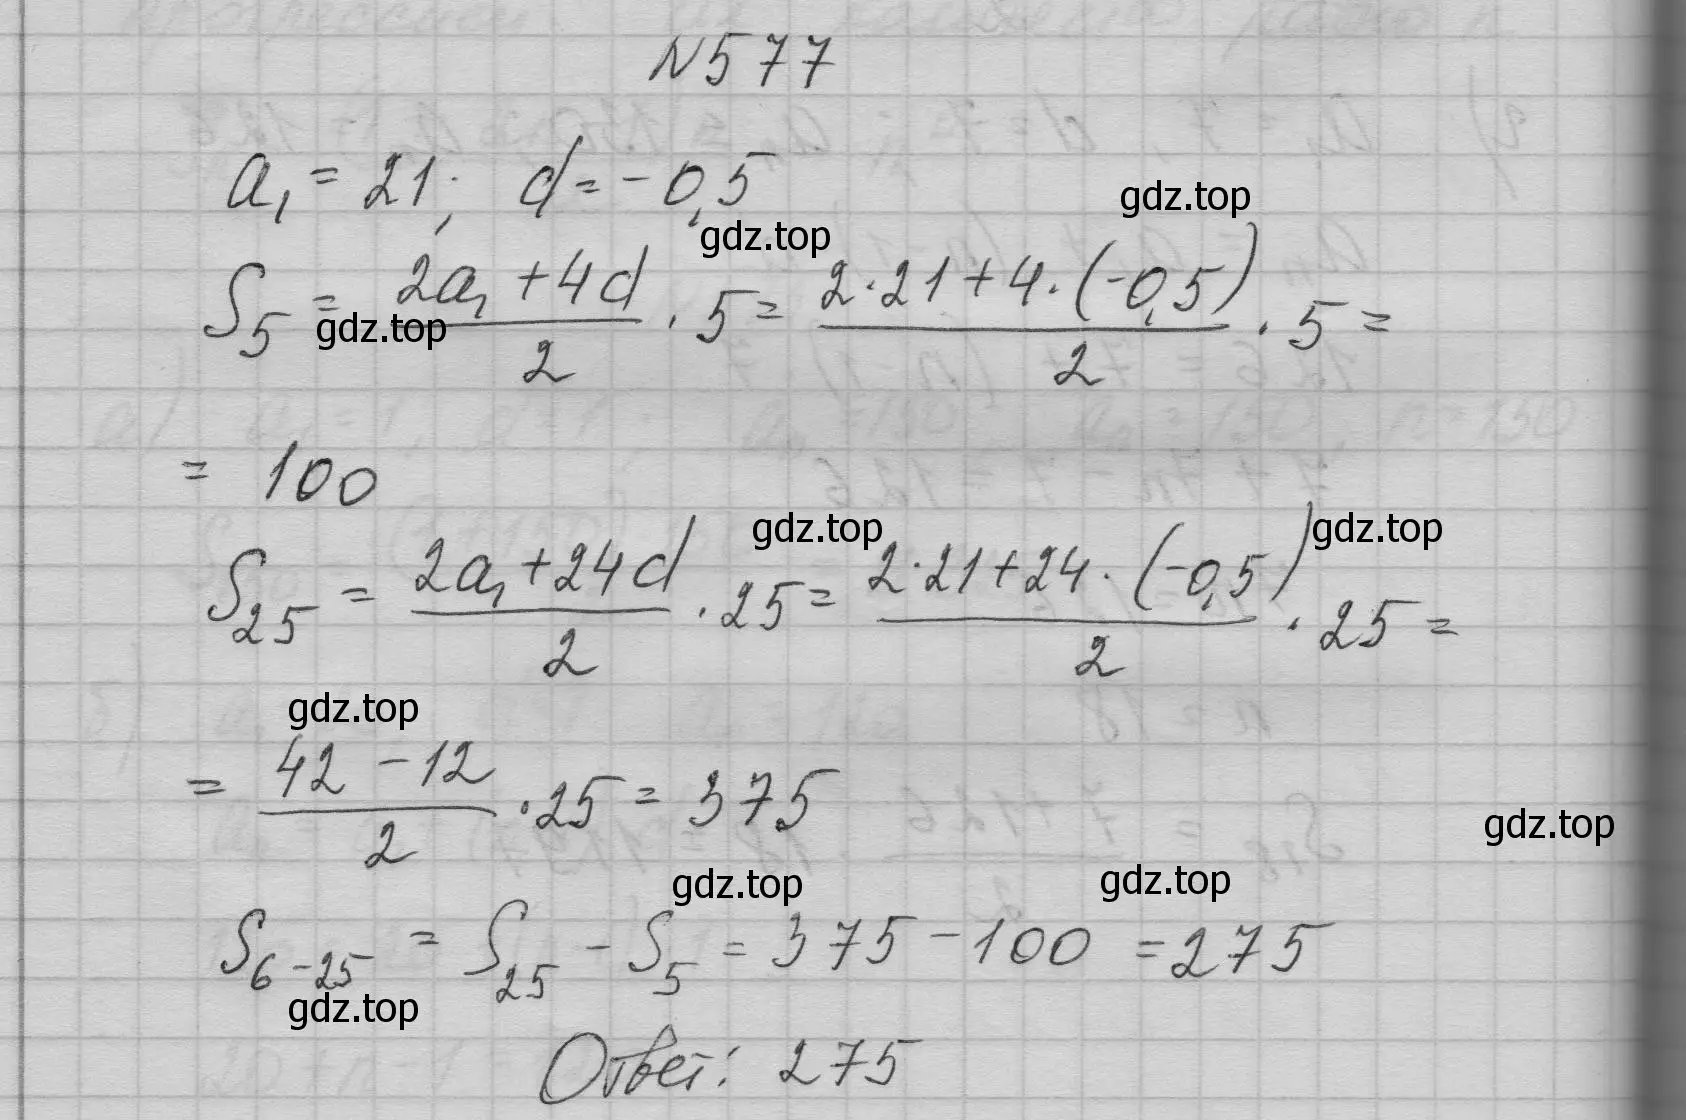 N577
a₁ = 21; d = -0,5
gdz.top
gdz.top
S₅ = (2a₁ + 4d)/2 · 5 = (2·21 + 4·(-0,5))/2 · 5 =
gdz.top
= 100
gdz.top
gdz.top
S₂₅ = (2a₁ + 24d)/2 · 25 = (2·21 + 24·(-0,5))/2 · 25 =
gdz.top
= (42 - 12)/2 · 25 = 375
gdz.top
gdz.top
gdz.top
S₆₋₂₅ = S₂₅ - S₅ = 375 - 100 = 275
gdz.top
Ответ: 275